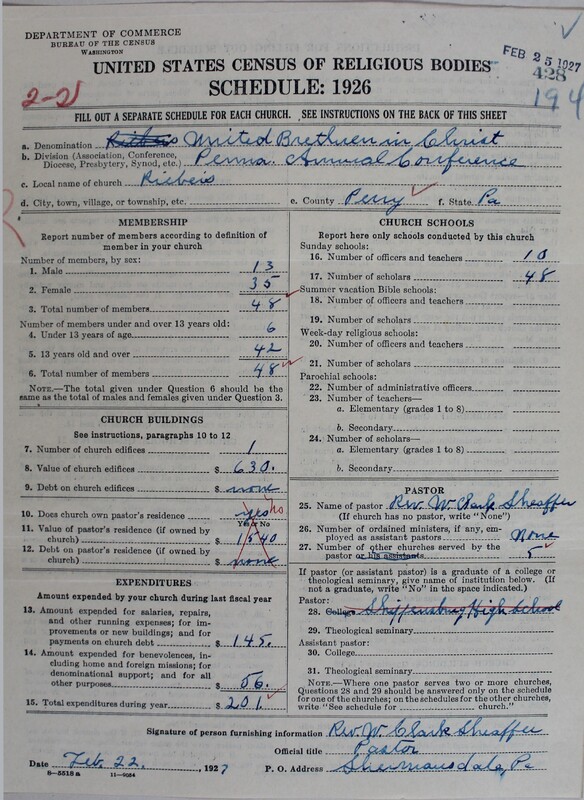 DEPARTMENT OF COMMERCE
BUREAU OF THE CENSUS
WASHINGTON
FEB 25 1927
428
194
UNITED STATES CENSUS OF RELIGIOUS BODIES
SCHEDULE: 1926
2-2
FILL OUT A SEPARATE SCHEDULE FOR EACH CHURCH. SEE INSTRUCTIONS ON THE BACK OF THIS SHEET
a. Denomination United Brethren in Christ
b. Division (Association, Conference, Diocese, Presbytery, Synod, etc.) Penna. Annual Conference
c. Local name of church Riebeis
d. City, town, village, or township, etc. e. County Perry f. State Pa
MEMBERSHIP
Report number of members according to definition of member in your church
Number of members, by sex:
1. Male 13
2. Female 35
3. Total number of members 48
Number of members under and over 13 years old:
4. Under 13 years of age 6
5. 13 years old and over 42
6. Total number of members 48
NOTE.—The total given under Question 6 should be the same as the total of males and females given under Question 3.
CHURCH BUILDINGS
See instructions, paragraphs 10 to 12
7. Number of church edifices 1
8. Value of church edifices $ 630.
9. Debt on church edifices $ none
10. Does church own pastor's residence? yes no
Yes or No
11. Value of pastor's residence (if owned by church) $ 1540
12. Debt on pastor's residence (if owned by church) $ none
EXPENDITURES
Amount expended by your church during last fiscal year
13. Amount expended for salaries, repairs, and other running expenses; for improvements or new buildings; and for payments on church debt $ 145.
14. Amount expended for benevolences, including home and foreign missions; for denominational support; and for all other purposes $ 56.
15. Total expenditures during year $ 201.
CHURCH SCHOOLS
Report here only schools conducted by this church
Sunday schools:
16. Number of officers and teachers 10
17. Number of scholars 48
Summer vacation Bible schools:
18. Number of officers and teachers
19. Number of scholars
Week-day religious schools:
20. Number of officers and teachers
21. Number of scholars
Parochial schools:
22. Number of administrative officers
23. Number of teachers—
a. Elementary (grades 1 to 8)
b. Secondary
24. Number of scholars—
a. Elementary (grades 1 to 8)
b. Secondary
PASTOR
25. Name of pastor Rev. W. Clark Sheaffer
(If church has no pastor, write "None")
26. Number of ordained ministers, if any, employed as assistant pastors None
27. Number of other churches served by the pastor or his assistants 5
If pastor (or assistant pastor) is a graduate of a college or theological seminary, give name of institution below. (If not a graduate, write "No" in the space indicated.)
Pastor:
28. College Shippensburg High School
29. Theological seminary
Assistant pastor:
30. College
31. Theological seminary
NOTE.—Where one pastor serves two or more churches, Questions 28 and 29 should be answered only on the schedule for one of the churches; on the schedules for the other churches, write "See schedule for church."
Signature of person furnishing information Rev. W Clark Sheaffer
Official title Pastor
Date Feb. 22, 1927 P. O. Address Shermansdale, Pa
8-5518 a 11-9054